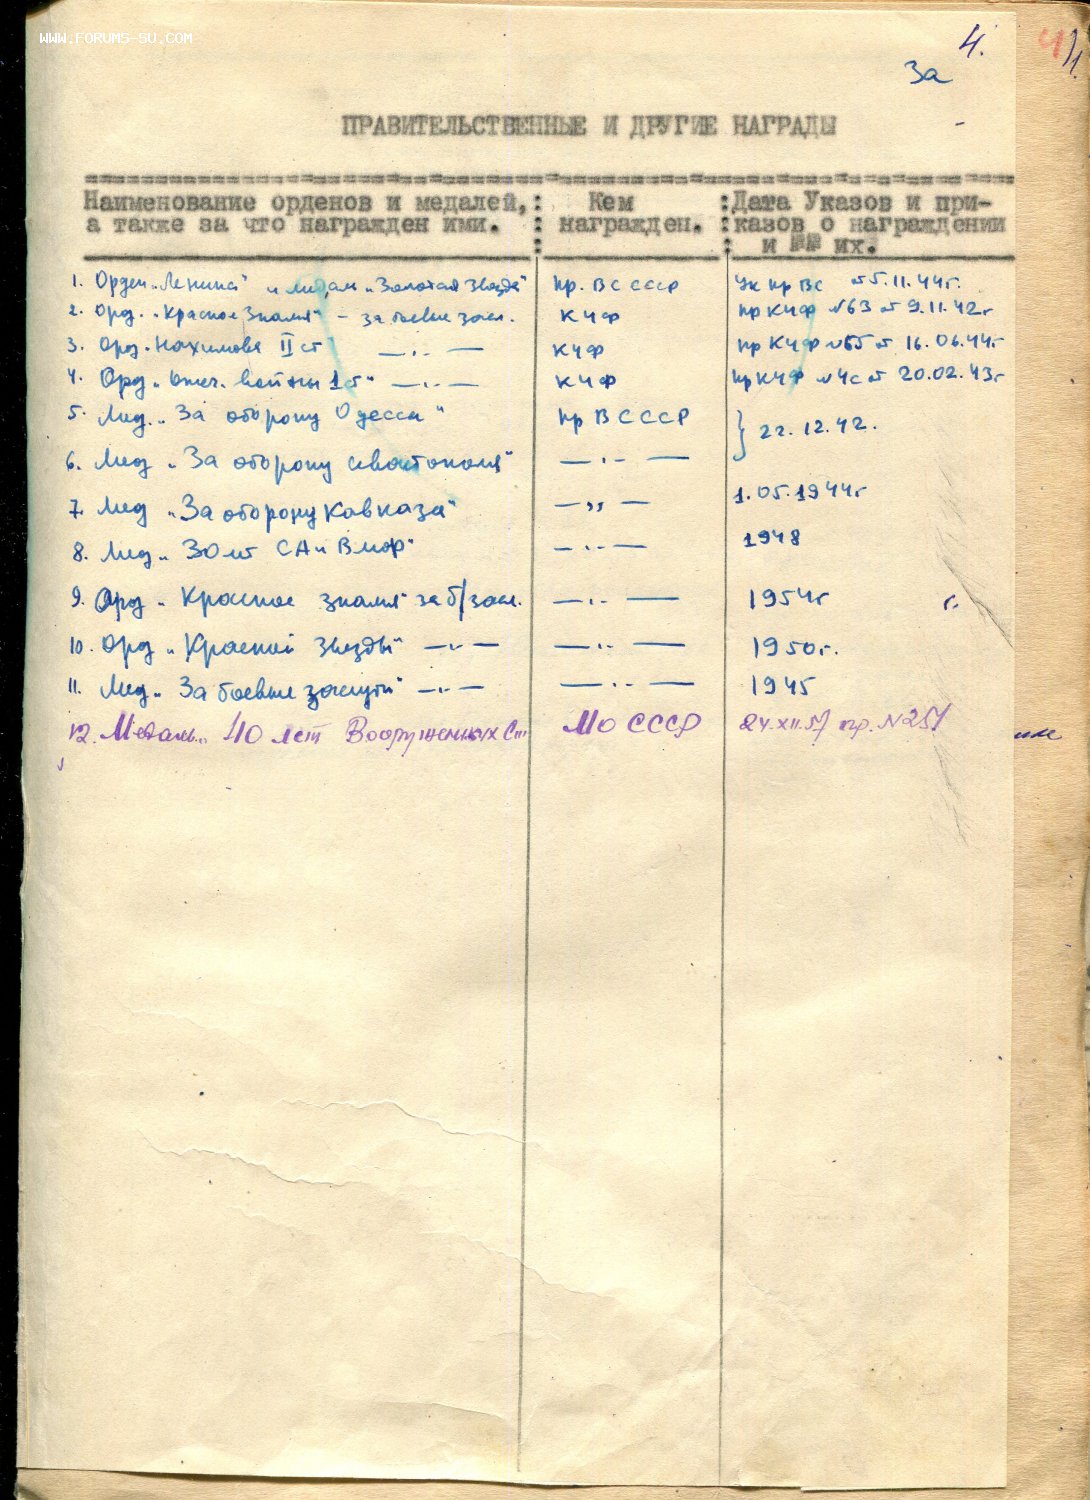 WWW.FORUMS-SU.COM
4.
4
За
ПРАВИТЕЛЬСТВЕННЫЕ И ДРУГИЕ НАГРАДЫ
Наименование орденов и медалей, : Кем : Дата Указов и при-
а также за что награжден ими. : награжден. : казов о награждении
: : и №№ их.
1. Орден "Ленина" и медаль "Золотая Звезда" Пр. ВС СССР Ук Пр ВС от 5.11.44г.
2. Орд. "Красное Знамя" - за боевые засл. КЧФ пр КЧФ №63 от 9.11.42г
3. Орд. Нахимова II ст —"— КЧФ пр КЧФ №55 от 16.06.44г
4. Орд "Отеч. войны 1 ст" —"— КЧФ пр КЧФ №4с от 20.02.43г
5. Мед. "За оборону Одессы" Пр ВС СССР } 22.12.42.
6. Мед "За оборону Севастополя" —"—
7. Мед "За оборону Кавказа" —"— 1.05.1944г
8. Мед "30 лет СА и ВМФ" —"— 1948
9. Орд "Красное знамя" за б/засл. —"— 1954г
г.
10. Орд "Красной Звезды" —"— —"— 1950г.
11. Мед "За боевые заслуги" —"— —"— 1945
12. Медаль "40 лет Вооруженных С... МО СССР 24.XII.57 пр. №251